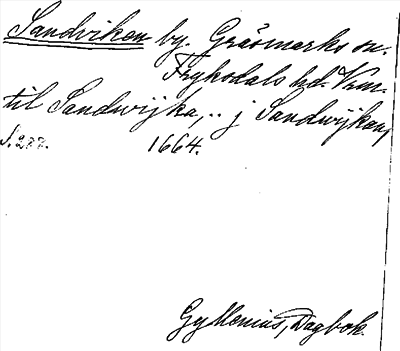 Sandviken by. Gräsmarks sn.
Fryksdals hd. Vrm.
til Sandwijka,.. j Sandwijkan,
S. 277. 1664.
Gyllenius, Dagbok.